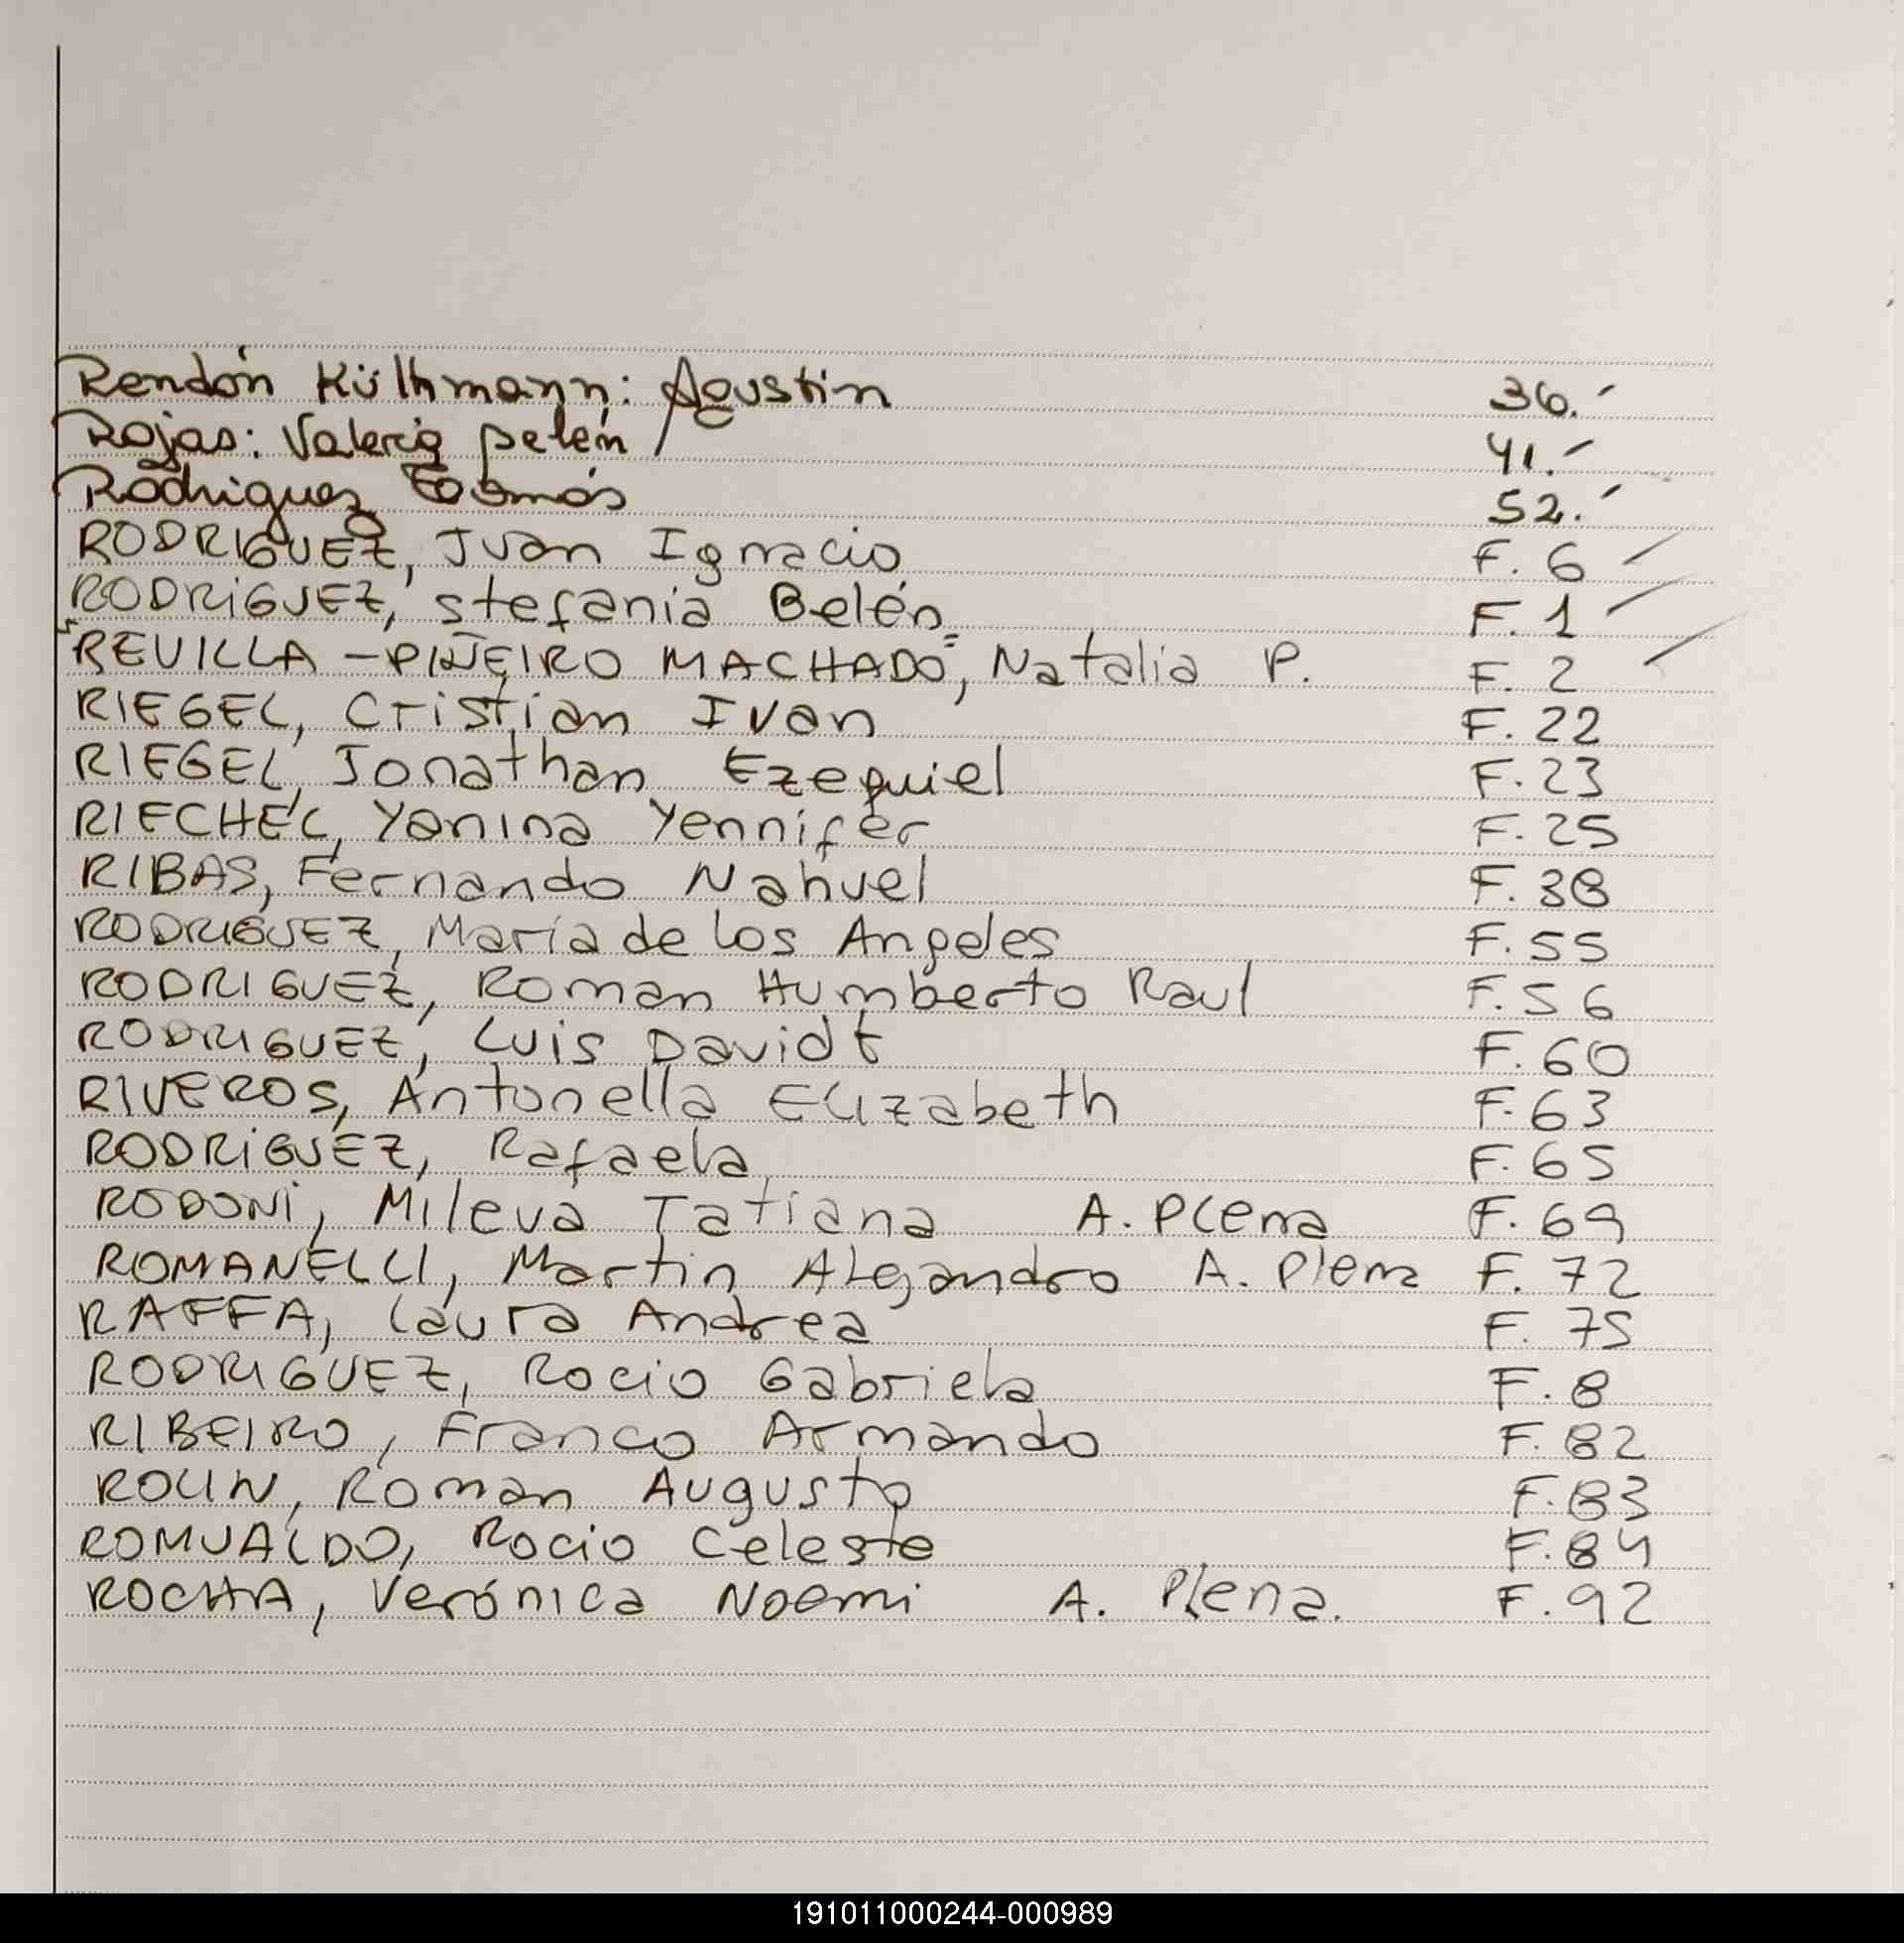 Rendón Külhmann: Agustin 36.-
Rojas: Valeria Belén 41.-
Rodriguez Tomás 52.-
RODRIGUEZ, Juan Ignacio F. 6
RODRiGUEZ, Stefania Belén F. 1
REVILLA - PIÑEIRO MACHADO, Natalia P. F. 2
RIEGEL, Cristian Ivan F. 22
RIEGEL, Jonathan Ezequiel F. 23
RIECHEL, Yanina Yennifer F. 25
RIBAS, Fernando Nahuel F. 38
RODRIGUEZ, María de los Angeles F. 55
RODRIGUEZ, Roman Humberto Raul F. 56
RODRIGUEZ, Luis Davidt F. 60
RIVEROS, Antonella Elizabeth F. 63
RODRiGUEZ, Rafaela F. 65
RODONi, Mileva Tatiana A. Plena F. 69
ROMANELLI, Martin Alejandro A. Plena F. 72
RAFFA, Laura Andrea F. 75
RODRIGUEZ, Rocio Gabriela F. 8
RIBEIRO, Franco Armando F. 82
ROLIN, Roman Augusto F. 83
ROMUALDO, Rocio Celeste F. 84
ROCHA, Verónica Noemi A. Plena. F. 92
191011000244-000989